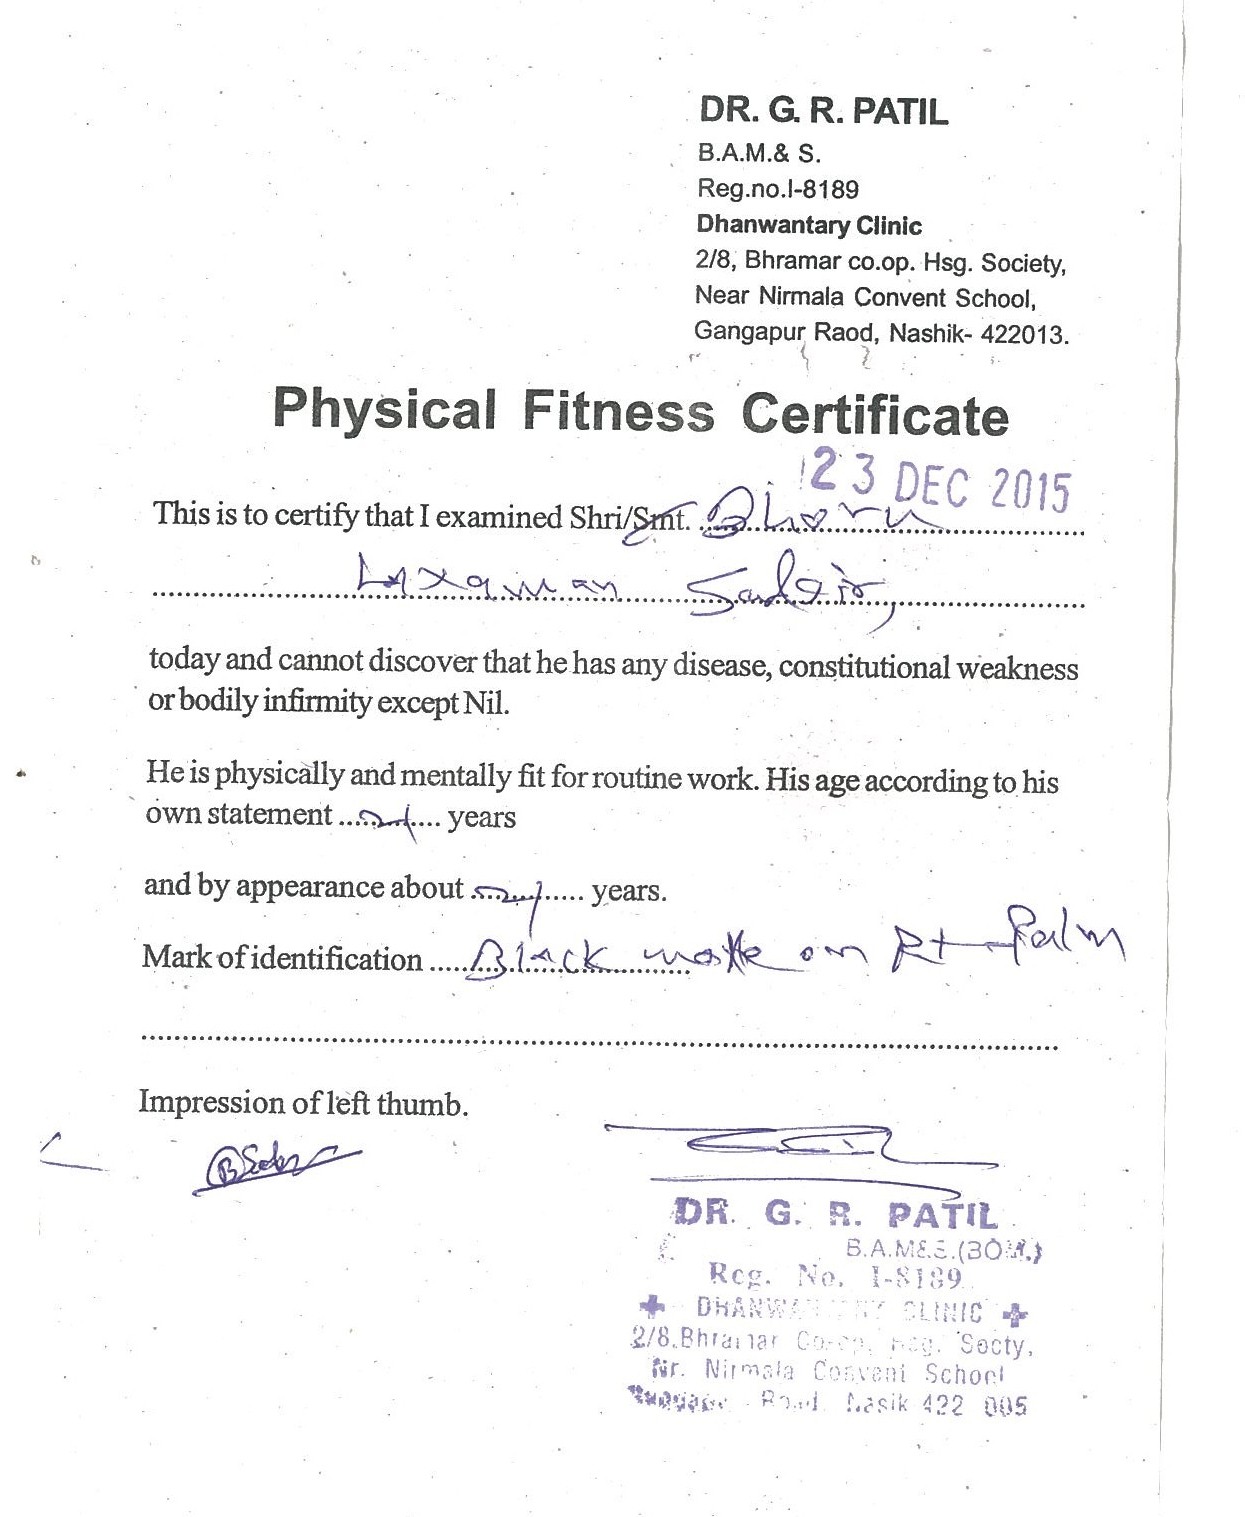 DR. G. R. PATIL
B.A.M.& S.
Reg.no.I-8189
Dhanwantary Clinic
2/8, Bhramar co.op. Hsg. Society,
Near Nirmala Convent School,
Gangapur Raod, Nashik- 422013.
Physical Fitness Certificate
23 DEC 2015
This is to certify that I examined Shri/Smt. ........................
Laxaman
today and cannot discover that he has any disease, constitutional weakness
or bodily infirmity except Nil.
He is physically and mentally fit for routine work. His age according to his
own statement ............ years
and by appearance about ............ years.
Mark of identification ..... Black on Rt Palm
Impression of left thumb.
DR. G. R. PATIL
B.A.M&S.(BOM.)
Reg. No. I-8189
DHANWANTARY CLINIC
2/8,Bhramar Co-op. Hsg. Socty,
Nr. Nirmala Convent School
Road Nasik 422 005